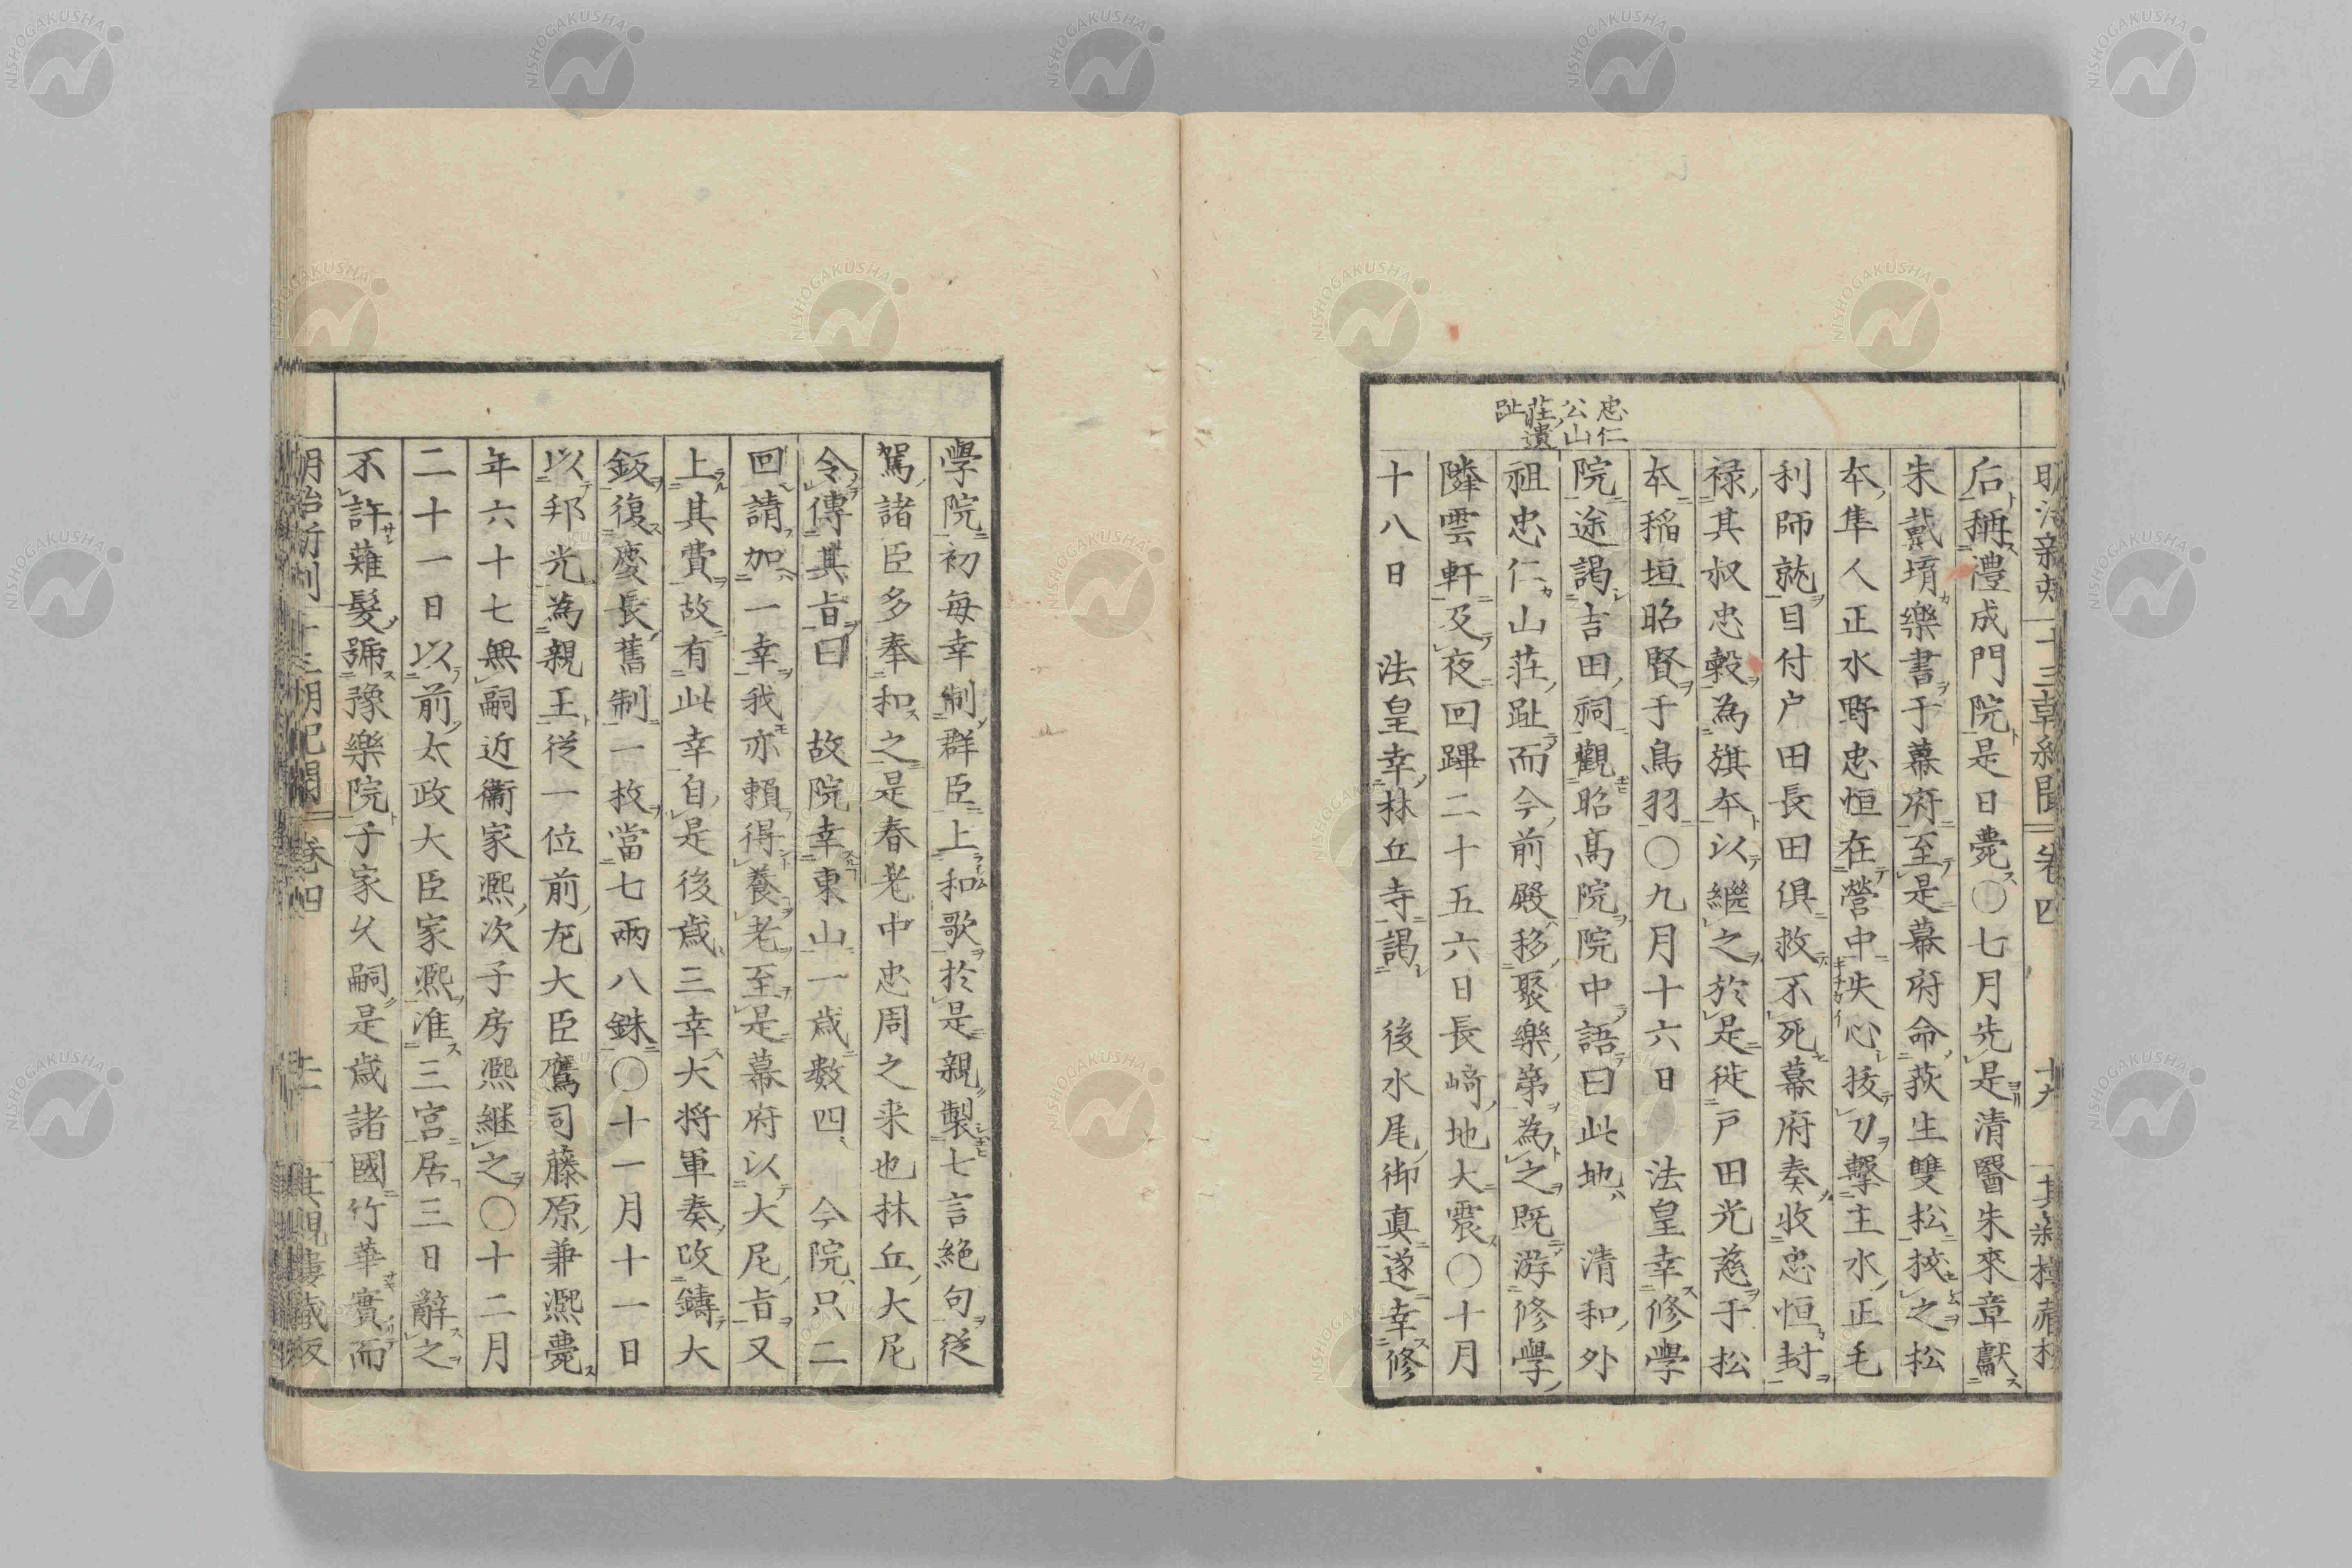 后稱禮成門院是日薨〇七月先是清醫朱來章獻
朱戴堉樂書于幕府至是幕府命荻生雙松挍之松
本隼人正水野忠恒在營中失心拔刀擊主水正毛
利師就目付戶田長田俱救不死幕府奏收忠恒封
祿其叔忠穀為旗本以繼之於是徙戶田光慈于松
本稲垣昭賢于鳥羽〇九月十六日 法皇幸修學
院途謁吉田祠觀昭高院院中語曰此地 清和外
祖忠仁山莊趾而今前殿移聚樂第為之既游修學
隣雲軒及夜回蹕二十五六日長﨑地大震〇十月
十八日 法皇幸林丘寺謁 後水尾御真遂幸修
忠仁
公山
莊遺
趾
學院初每幸制群臣上和歌於是親製七言絕句從
駕諸臣多奉和之是春老中忠周之来也林丘大尼
令傳其旨曰 故院幸東山一歳数四 今院只二
回請加一幸我亦賴得養老至是幕府以大尼旨又
上其費故有此幸自是後歳三幸大将軍奏改鑄大
鈑復慶長舊制一枚當七兩八銖〇十一月十一日
以邦光為親王從一位前左大臣鷹司藤原兼熙薨
年六十七無嗣近衞家熙次子房熙継之〇十二月
二十一日以前太政大臣家熙准三宮居三日辭之
不許薙髮號豫樂院子家久嗣是歳諸國竹華實而
明治新刻十三朝紀聞 卷四 其親樓蔵板